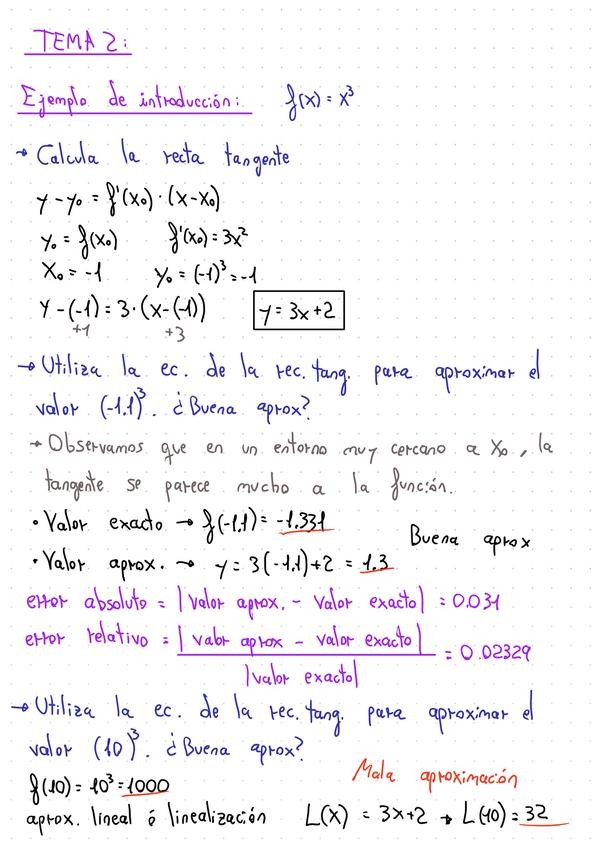 TEMA 2:
Ejemplo de introducción: f(x) = x³
→ Calcula la recta tangente
y - y₀ = f'(x₀) · (x-x₀)
y₀ = f(x₀) f'(x₀) = 3x²
x₀ = -1 y₀ = (-1)³ = -1
y - (-1) = 3·(x-(-1)) y = 3x+2
+1 +3
→ Utiliza la ec. de la rec. tang. para aproximar el
valor (-1.1)³. ¿Buena aprox?
→ Observamos que en un entorno muy cercano a x₀, la
tangente se parece mucho a la función.
• Valor exacto → f(-1.1) = -1.331
Buena aprox
• Valor aprox. → y = 3(-1.1)+2 = 1.3
error absoluto = |valor aprox. - valor exacto| = 0.031
error relativo = |valor aprox - valor exacto| = 0.02329
|valor exacto|
→ Utiliza la ec. de la rec. tang. para aproximar el
valor (10)³. ¿Buena aprox?
Mala aproximación
f(10) = 10³ = 1000
aprox. lineal ó linealización L(x) = 3x+2 → L(10) = 32